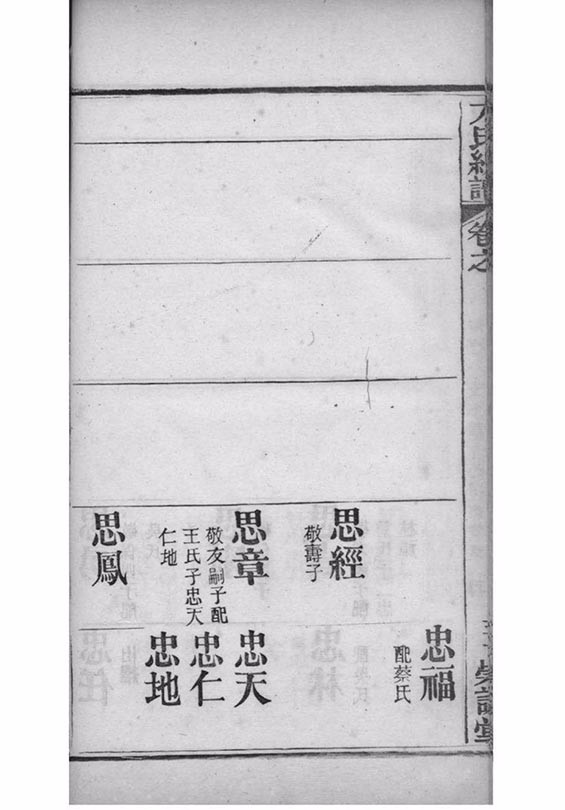 忠福
配蔡氏
思經
敬壽子
思章
敬友嗣子配
王氏子忠天
仁地
忠天
忠仁
忠地
思鳳